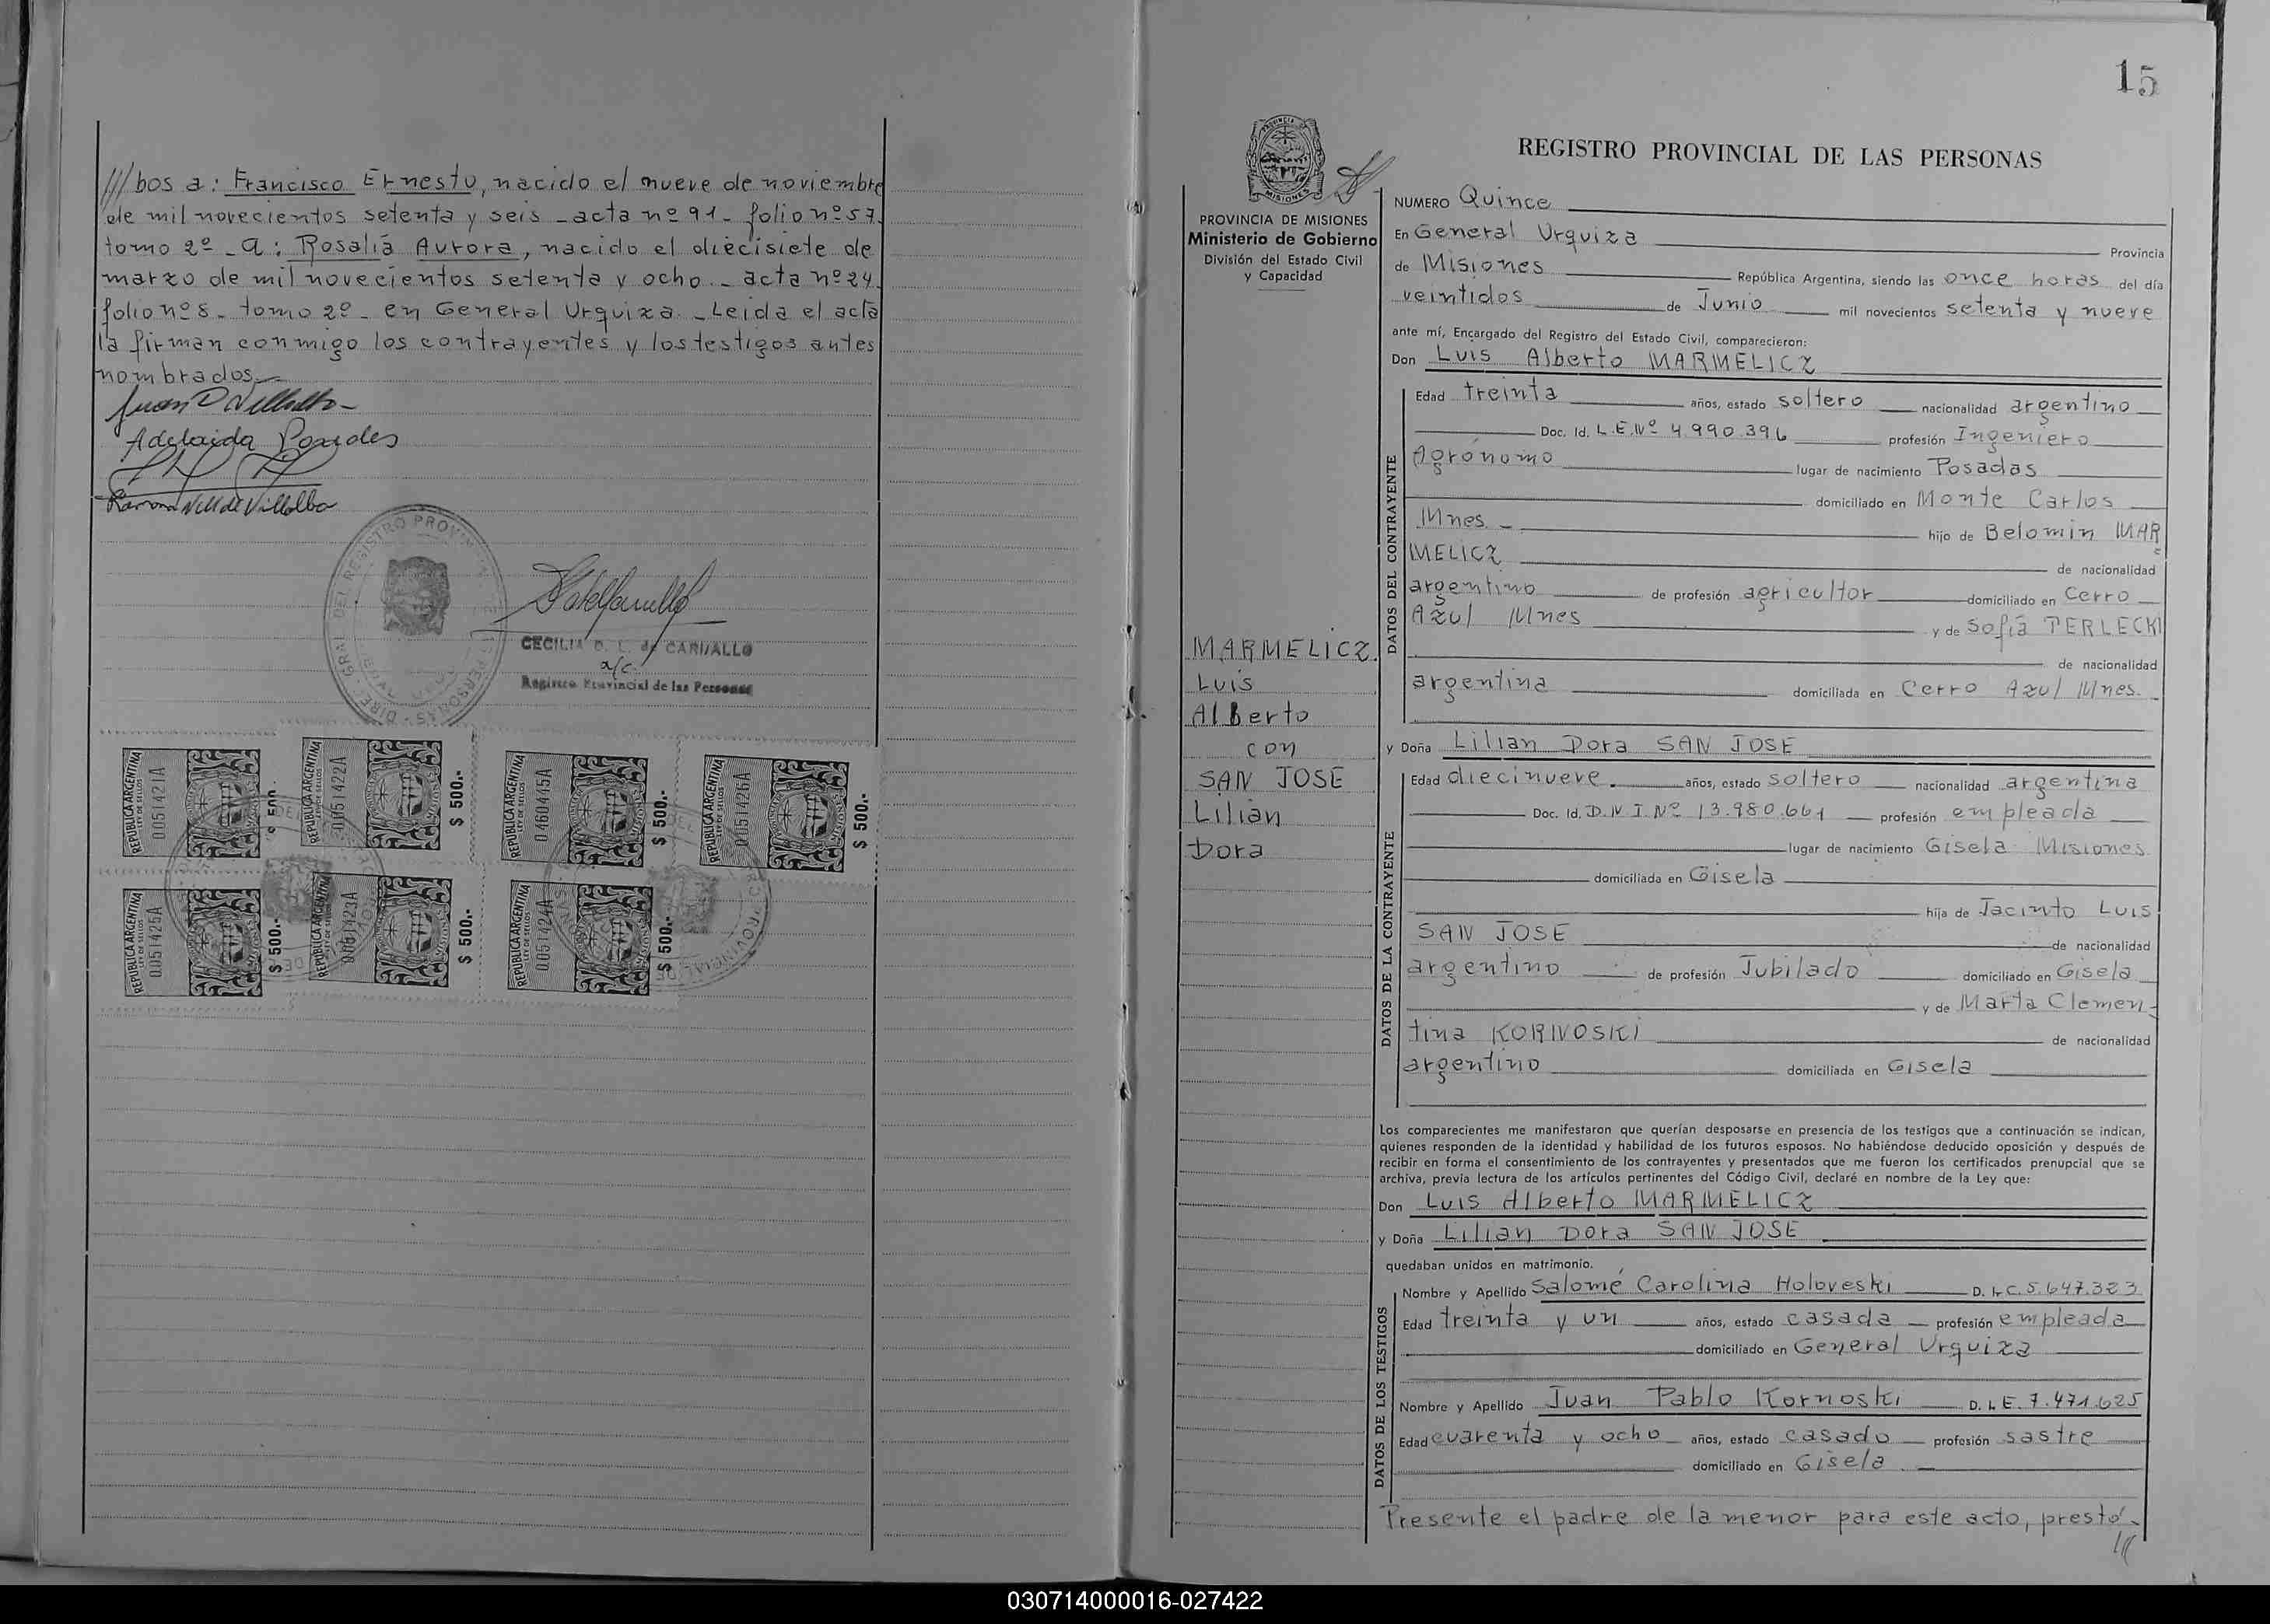 ///bos a: Francisco Ernesto, nacido el nueve de noviembre
de mil novecientos setenta y seis - acta nº 91 - folio nº 57.
tomo 2º - a: Rosalía Aurora, nacido el diecisiete de
marzo de mil novecientos setenta y ocho - acta nº 24.
folio nº 8 - tomo 2º - en General Urquiza - Leida el acta
la firman conmigo los contrayentes y los testigos antes
nombrados.-
Adelaida Paredes
Ramona V. de Villalba
CECILIA D. L. de CARVALLO
a/c.
Registro Provincial de las Personas
REPUBLICA ARGENTINA
LEY DE SELLOS
0051421A
$ 500.-
REPUBLICA ARGENTINA
LEY DE SELLOS
0051422A
$ 500.-
REPUBLICA ARGENTINA
LEY DE SELLOS
0460445A
$ 500.-
REPUBLICA ARGENTINA
LEY DE SELLOS
0051426A
$ 500.-
REPUBLICA ARGENTINA
LEY DE SELLOS
0051425A
$ 500.-
REPUBLICA ARGENTINA
LEY DE SELLOS
0051423A
$ 500.-
REPUBLICA ARGENTINA
LEY DE SELLOS
0051424A
$ 500.-
15
REGISTRO PROVINCIAL DE LAS PERSONAS
PROVINCIA DE MISIONES
Ministerio de Gobierno
División del Estado Civil
y Capacidad
MARMELICZ
Luis
Alberto
con
SAN JOSE
Lilian
Dora
NUMERO Quince
En General Urquiza Provincia
de Misiones República Argentina, siendo las once horas del día
veintidos de Junio mil novecientos setenta y nueve
ante mí, Encargado del Registro del Estado Civil, comparecieron:
Don Luis Alberto MARMELICZ
DATOS DEL CONTRAYENTE
Edad treinta años, estado soltero nacionalidad argentino
Doc. Id. L.E.Nº 4.990.396 profesión Ingeniero
Agrónomo lugar de nacimiento Posadas
domiciliado en Monte Carlos
Mnes. - hijo de Belomin MAR
MELICZ de nacionalidad
argentino de profesión agricultor domiciliado en Cerro
Azul Mnes y de Sofia TERLECKI
de nacionalidad
argentina domiciliada en Cerro Azul Mnes.
y Doña Lilian Dora SAN JOSE
DATOS DE LA CONTRAYENTE
Edad diecinueve. años, estado soltero nacionalidad argentina
Doc. Id. D.N.I.Nº 13.980.661 profesión empleada
lugar de nacimiento Gisela Misiones
domiciliada en Gisela
hija de Jacinto Luis
SAN JOSE de nacionalidad
argentino de profesión Jubilado domiciliado en Gisela
y de Marta Clemen-
tina KORNOSKI de nacionalidad
argentino domiciliada en Gisela
Los comparecientes me manifestaron que querían desposarse en presencia de los testigos que a continuación se indican,
quienes responden de la identidad y habilidad de los futuros esposos. No habiéndose deducido oposición y después de
recibir en forma el consentimiento de los contrayentes y presentados que me fueron los certificados prenupcial que se
archiva, previa lectura de los artículos pertinentes del Código Civil, declaré en nombre de la Ley que:
Don Luis Alberto MARMELICZ
y Doña Lilian Dora SAN JOSE
quedaban unidos en matrimonio.
DATOS DE LOS TESTIGOS
Nombre y Apellido Salomé Carolina Holoveski D. I. L.C. 5.647.323
Edad treinta y un años, estado casada profesión empleada
domiciliado en General Urquiza
Nombre y Apellido Juan Pablo Kornoski D. I. L.E. 7.471.625
Edad cuarenta y ocho años, estado casado profesión sastre
domiciliado en Gisela
Presente el padre de la menor para este acto, prestó-
///
030714000016-027422